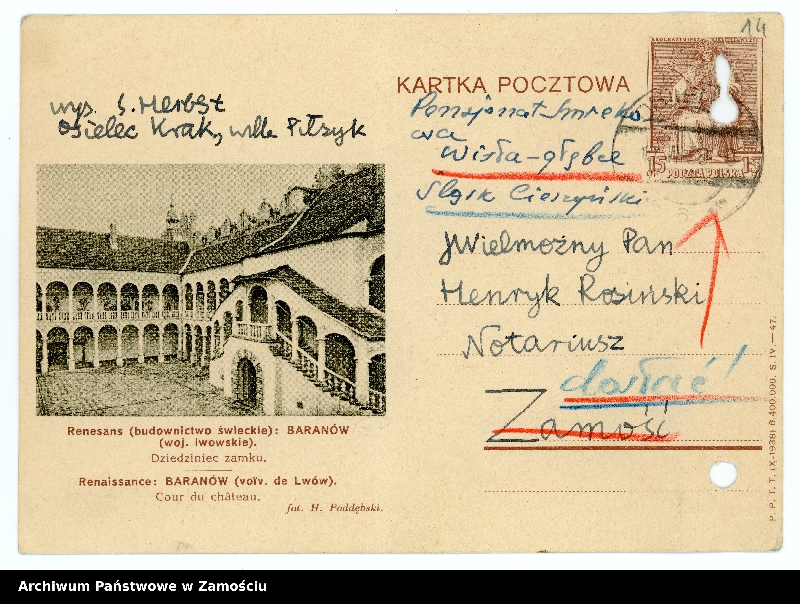 14
KARTKA POCZTOWA
wys. S. Herbst
Osielec Krak, willa Pitrzyk
Pensjonat Smreko
wa
Wisła-głębce
Śląsk Cieszyński
15 POCZTA POLSKA 15
JWielmożny Pan
Henryk Rosiński
Notariusz
dosłać!
Zamość
Renesans (budownictwo świeckie): BARANÓW
(woj. lwowskie).
Dziedziniec zamku.
Renaissance: BARANÓW (voïv. de Lwów).
Cour du château.
fot. H. Poddębski.
P. P. T. T. (X-1938) 8.400.000. S. IV.—47.
Archiwum Państwowe w Zamościu